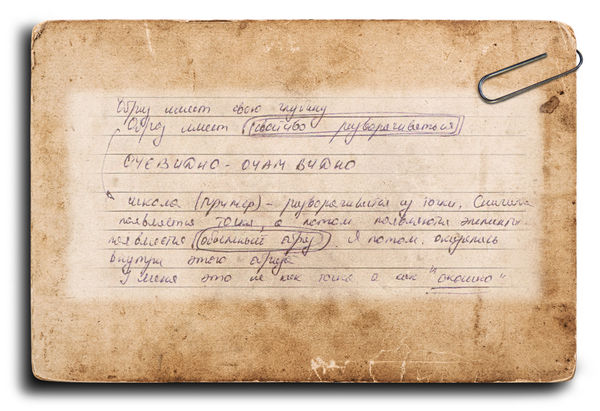 Образ имеет свою глубину
Образ имеет свойство разворачиваться
ОЧЕВИДНО - ОЧАМ ВИДНО
школа (пример) - разворачивается из точки. Сначала
появляется точка, а потом появляются элементы
появляется объемный образ. Я потом, оказываюсь
внутри этого образа
У меня это не как точка а как "окошко"